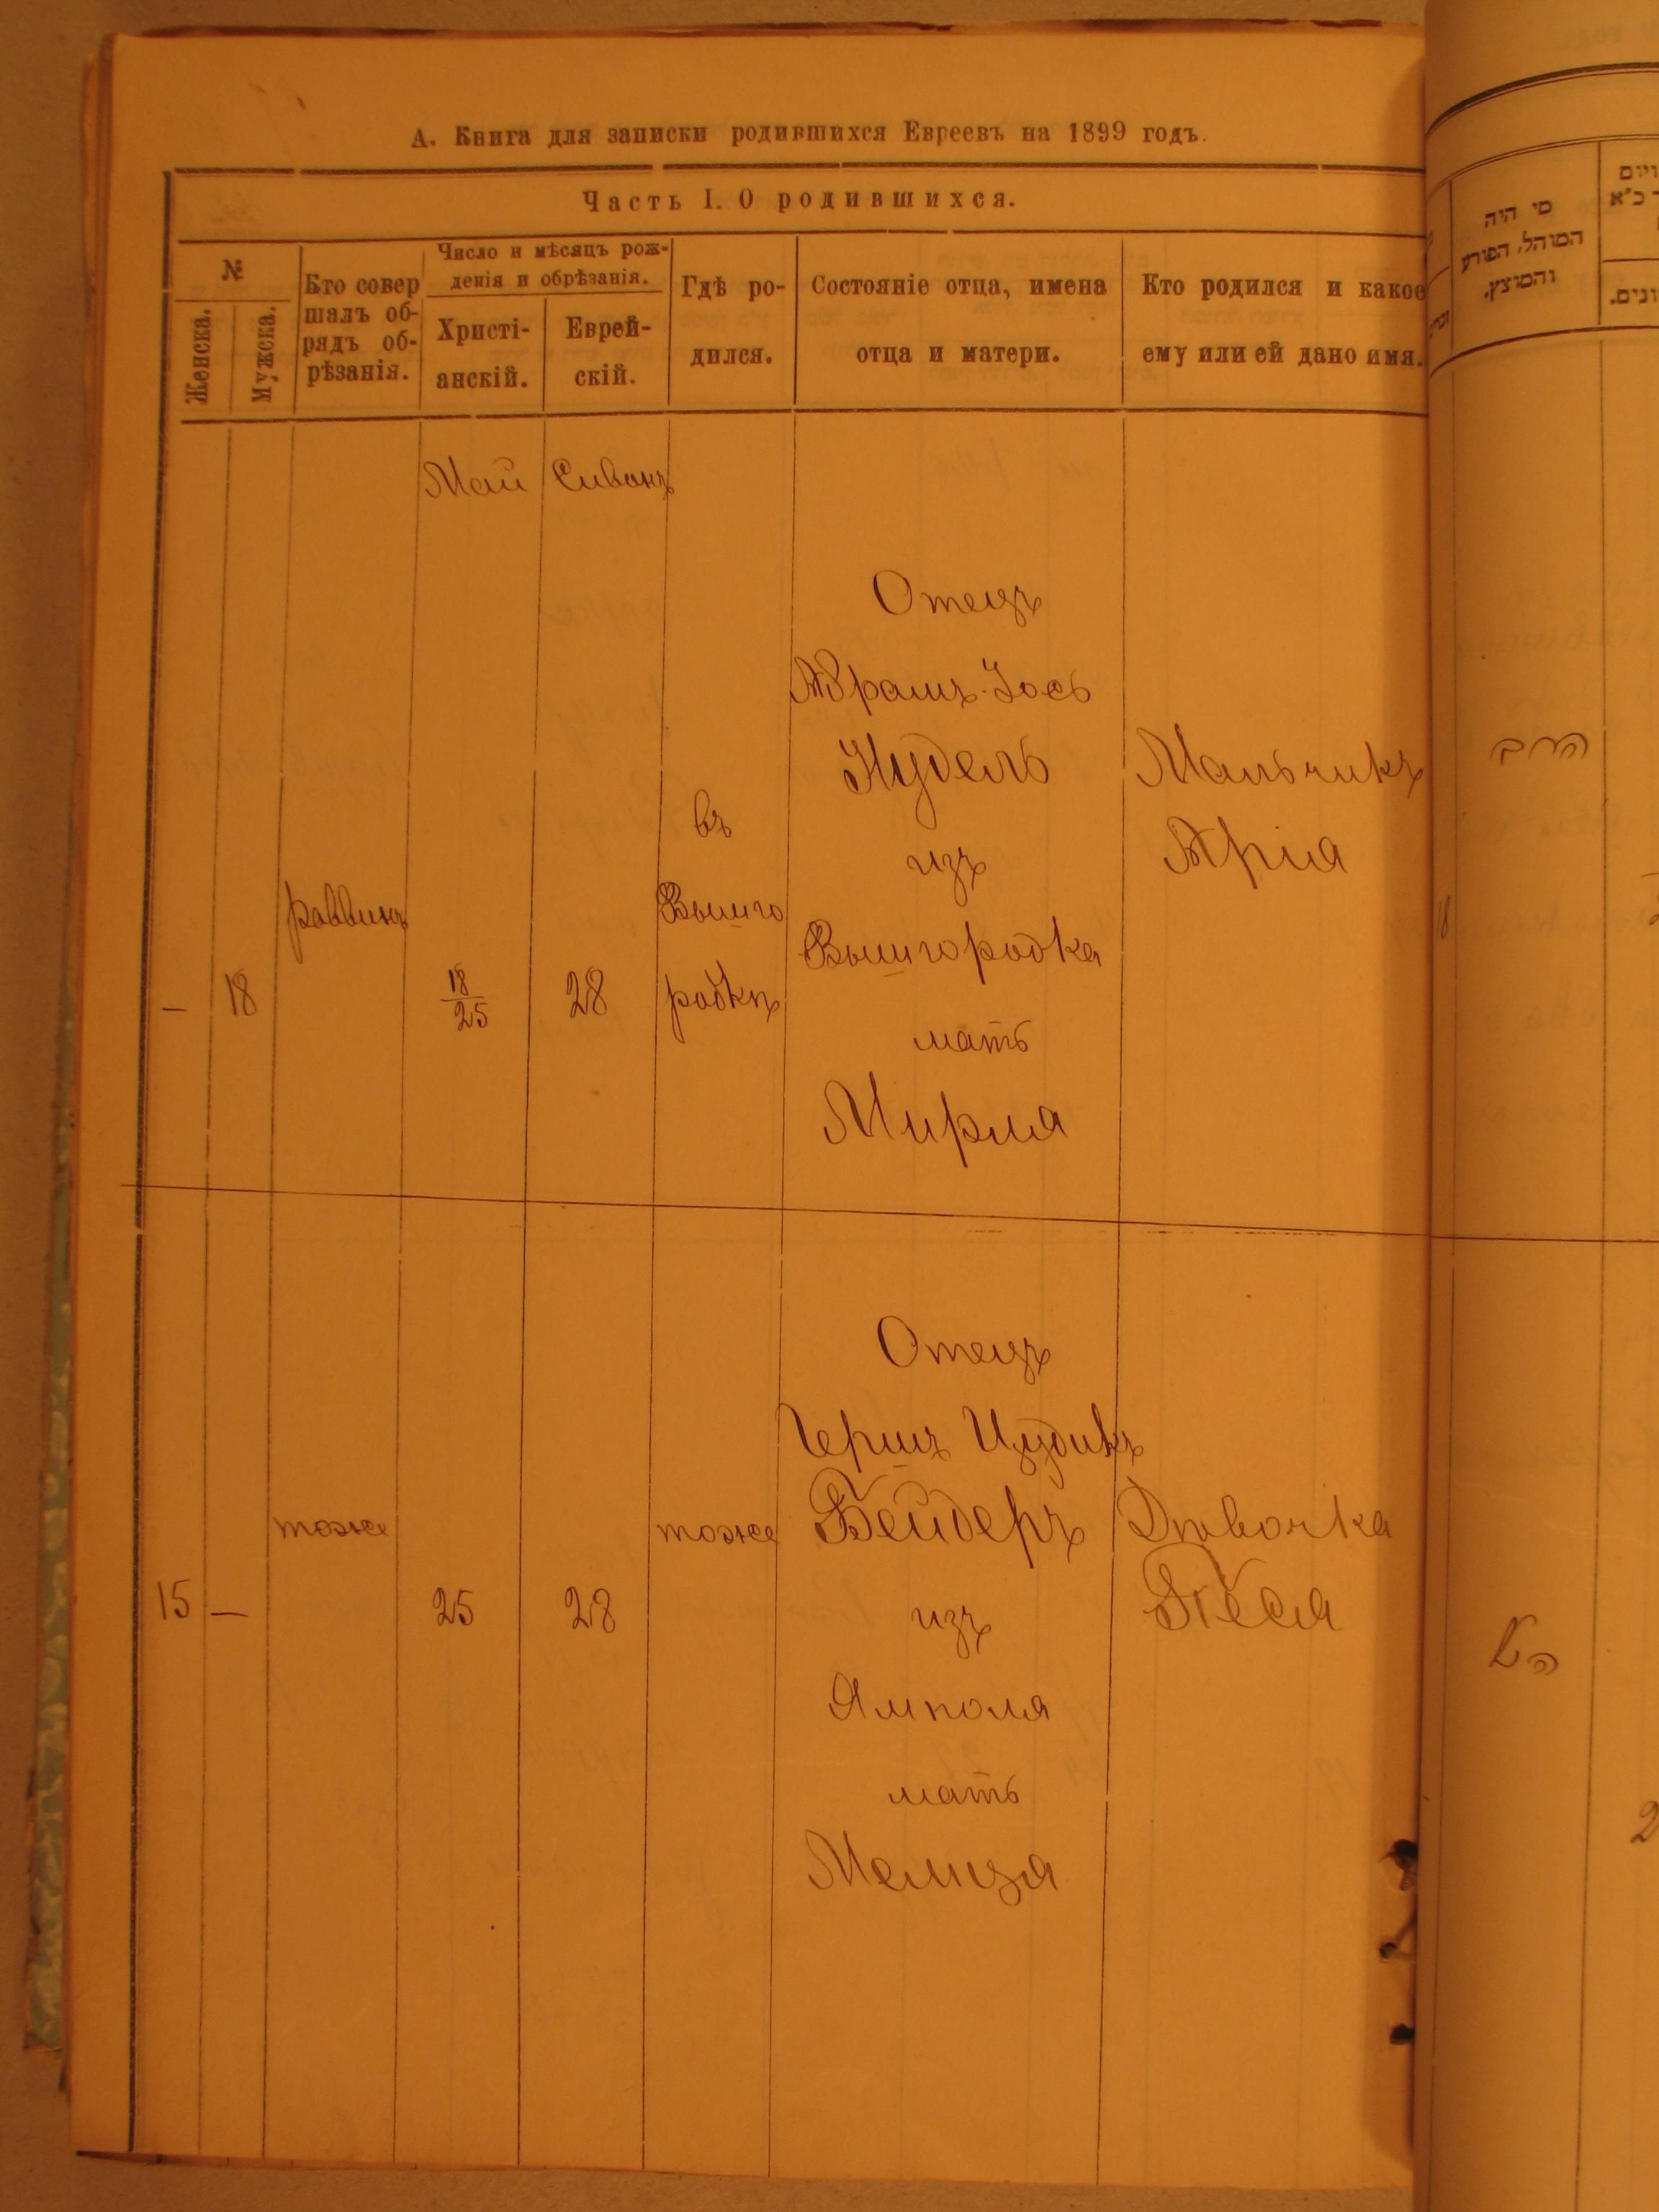 А. Книга для записки родившихся Евреевъ на 1899 годъ.
Часть I. О родившихся.
№
Женска.
Мужска.
Кто совер
шалъ об-
рядъ об-
рѣзанія.
Число и мѣсяцъ рож-
денія и обрѣзанія.
Христі-
анскій.
Еврей-
скій.
Гдѣ ро-
дился.
Состояніе отца, имена
отца и матери.
Кто родился и какое
ему или ей дано имя.
Май Сивонъ
— 18
раввинъ
18
25
28
въ
Вышго
родкѣ
Отецъ
Абрамъ-Іось
Нудель
изъ
Вышгородка
мать
Мирля
Мальчикъ
Арія
15 —
тоже
25
28
тоже
Отецъ
Гершъ Цудикъ
Бейдеръ
изъ
Ямполя
мать
Мемця
Дѣвочка
Песя
מי היה
המוהל, הפורע
והמוצץ.
הרב
18